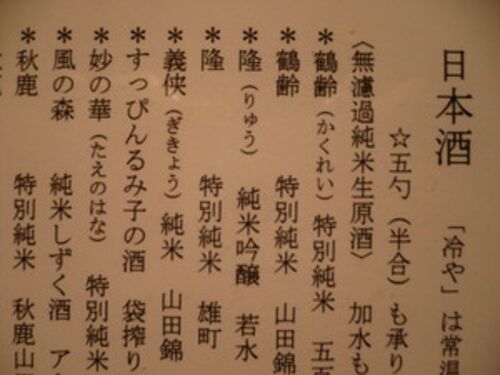 日本酒 「冷や」は常温
☆五勺(半合)も承り
〈無濾過純米生原酒〉 加水も
*鶴齢(かくれい)特別純米 五百
*鶴齢 特別純米 山田錦
*隆(りゅう) 純米吟醸 若水
*隆 特別純米 雄町
*義侠(ぎきょう)純米 山田錦
*すっぴんるみ子の酒 袋搾り
*妙の華(たえのはな) 特別純米
*風の森 純米しずく酒 ア
*秋鹿 特別純米 秋鹿山